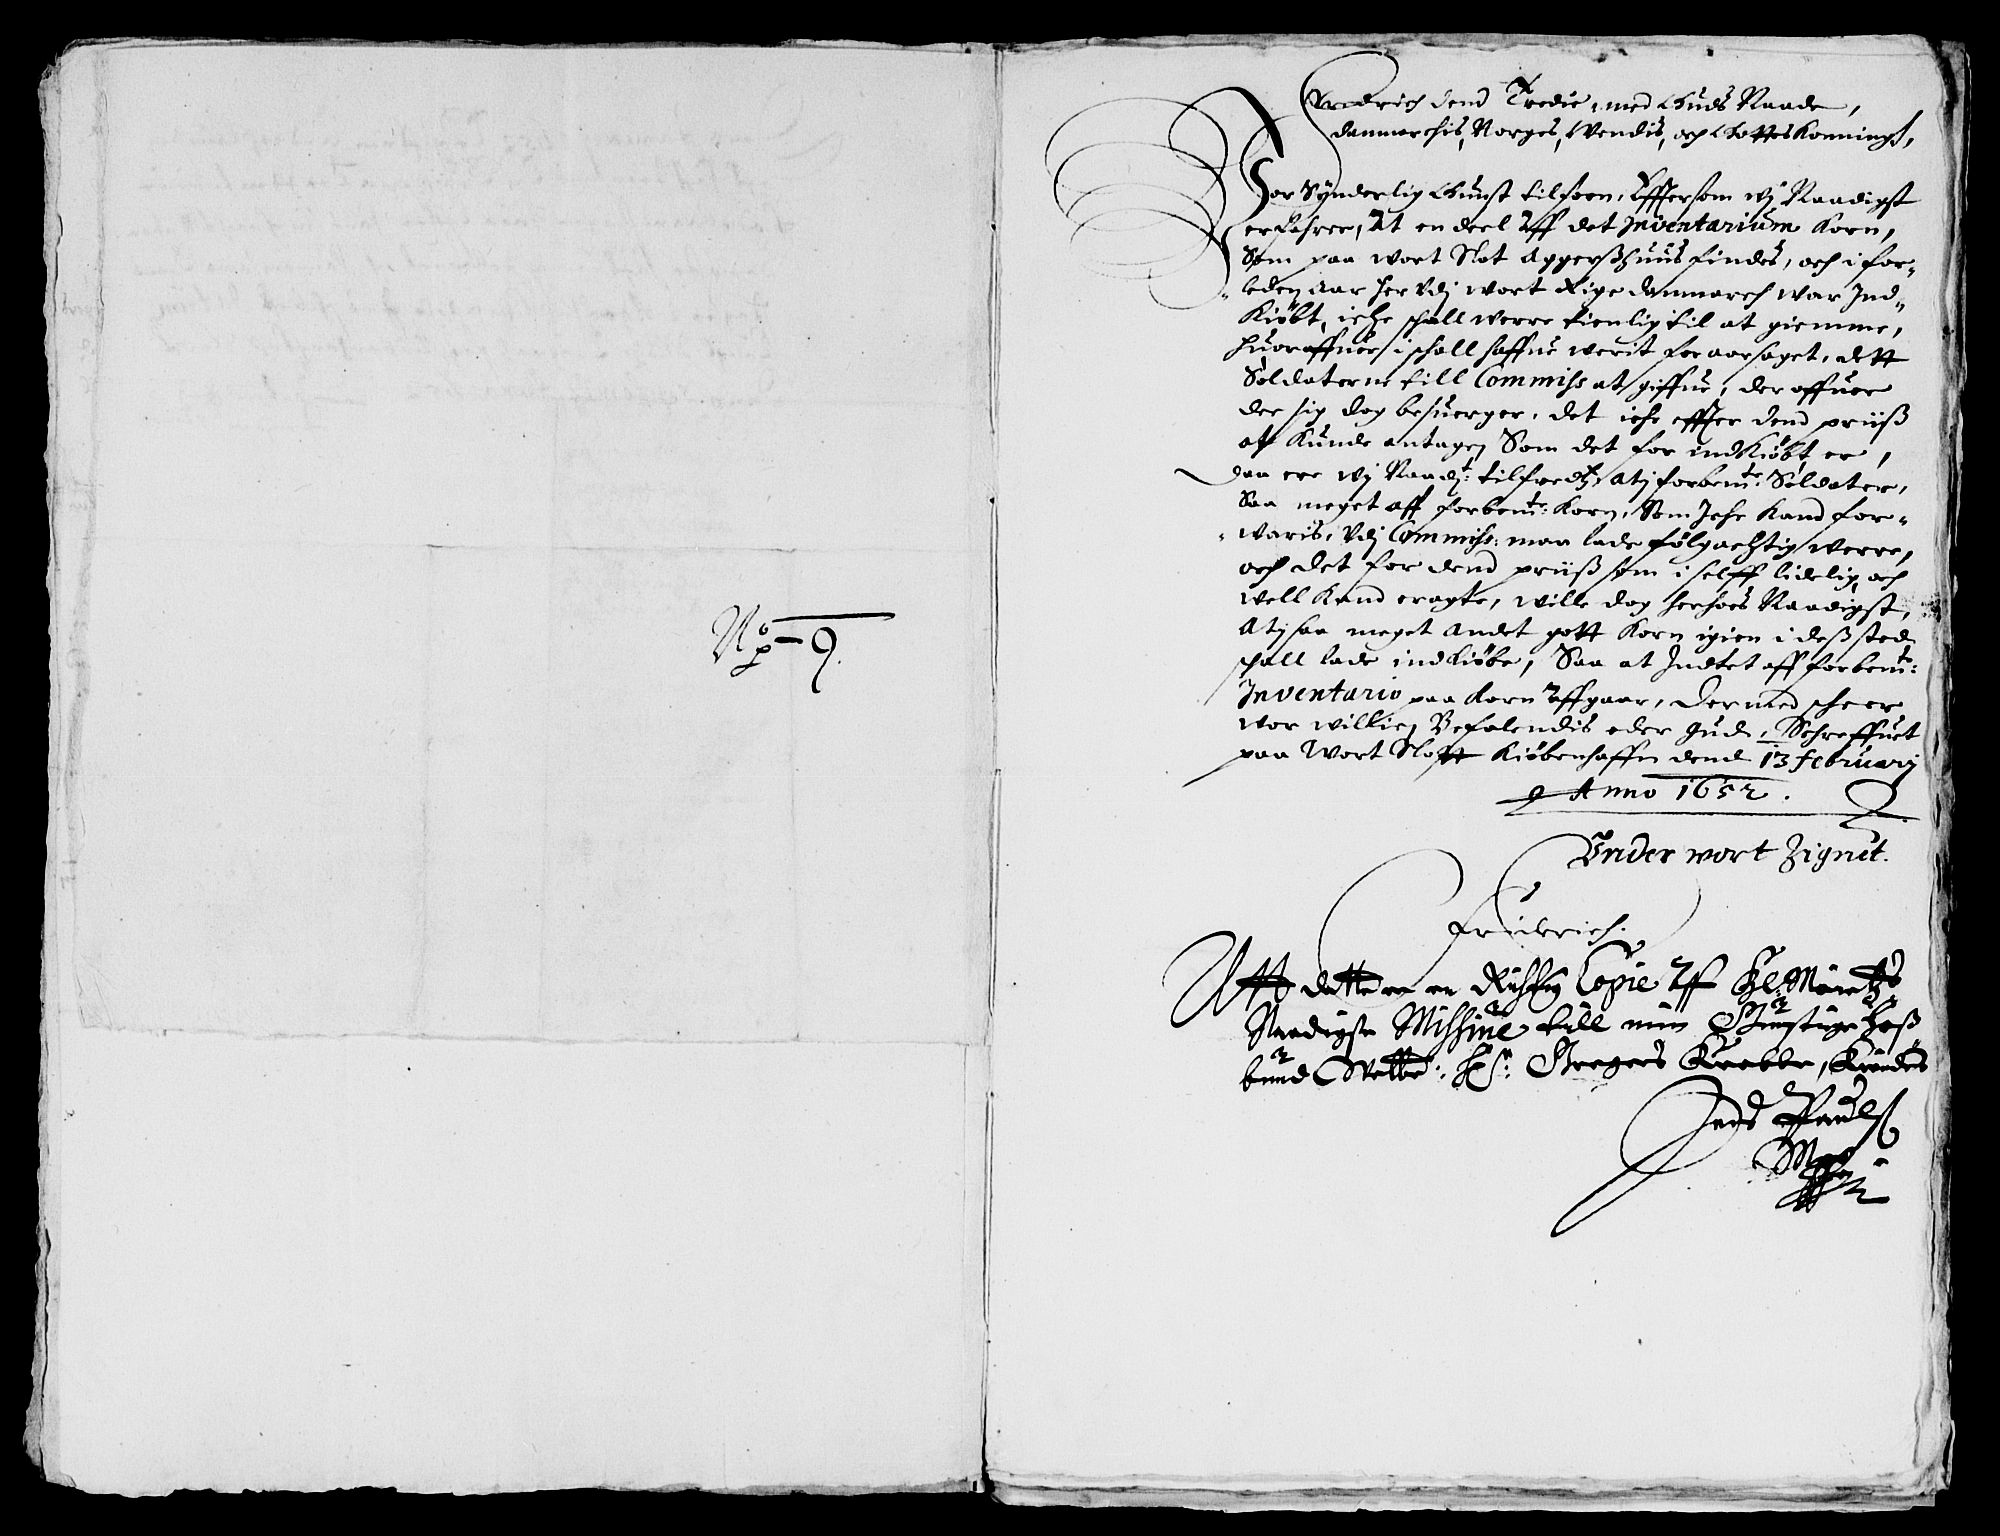 No 9.
Fredrich dend Tredie, med Guds Naade,
danmarchis, Norges, Wendis, och Gottes Konningh,
Vor Synderlig Gunst tilforn, Effterson wj Naadigst
erfahrer, At en deel Aff det Inventarium Korn,
Som paa wort Slot Aggerßhuus findes, och i for-
leden aar her vdj wort Rige danmarch war Ind-
Kiöbt, iche schall werre tienlig til at giemme,
huoraffuer i schall haffue werit foraarsaget, dett
Soldaterne till Commiss at giffue, der offuer
der sig dog besuerger, det iche effter dend priiß
at Kunde antagen Som det for indkiöbt er,
daa ere wj Naadt: tilfredtz, Atj forbemte: Soldater,
Saa meget aff forbemte: Korn, Som Iche Kand for-
waris, Vdj Commiss: maa lade fölgachtig werre,
och det for dend priiß som i selff lidelig, och
well Kand eragte, wille dog herhoes Naadigst,
Atj saa meget andet gott Korn igien i deß sted
schall lade indkiöbe, Saa at Indtet aff forbemte:
Inventario paa Korn Affgaar, Dermed scheer
wor willien Befalendis eder Gud, Schreffuet
paa Wort Slott Kiöbenhaffn dend 13 februarij
Anno 1652.
Vnder wort Zignet.
Friderich.
Att dette er en Rigtig Copie Aff Kl: Maietz
Naadigste Missiue till min Gunstige Hoß
bund Welbr: Hr: Gregers Krabbe, Kiendes
Jens Paulß